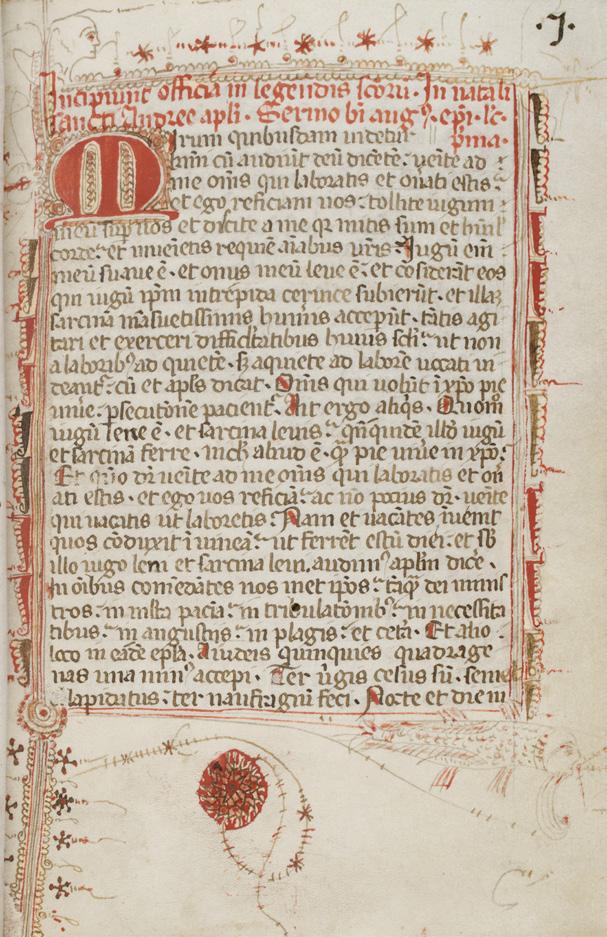 ·I·
Incipiunt officia in legendis scõrum. In natali
sancti Andree apłi. Sermo bi aug⁹. epĩ. lc̃.
pma.
Mirum quibusdam uidetur
hnm cũ audiut deũ dicẽtẽ: ueĩte ad
me om̃s qui laboratis et on̾ati estis:
et ego reficiam uos: tollite iugum
meũ sup uos et discite a me qr mitis sum et humĩl
corde: et inueietis requiẽ aĩabus urĩs. Iugũ eĩm
meũ suaue ẽ. et onus meũ leue ẽ. et cõsiderãt eos
qui iugũ ipm intrepida ceruice subierũt. et illaz
sarcinã mãsuetissimis humis acceperũt. tãtis agi
tari et exerceri difficltatibus huius scłi: ut non
a laborib⁹ ad quietẽ. sʒ a quiete ad laborẽ uocati ui
deant᷑: cũ et apłs dicat. Om̃s qui uolũt ĩ xp̃o pie
uiue: psecutõnẽ pacient᷑. Ait ergo aliqs. Quom̃
iugũ lene ẽ. et sarcina leuis: qñquidẽ illð iugũ
et sarcinã ferre. nicħ aliud ẽ. q̃ pie uiue in xp̃o:
Et quõ dr̃ ueĩte ad me om̃s qui laboratis et on̾
ati estis. et ego uos reficiã: ac nõ pocius dr̃. ueĩte
qui uacatis ut laboretis: Nam et uacãtes ĩueĩt
quos cõduxit ĩ uineã: ut ferrẽt estũ diei: et sb̃
illo iugo leni et sarcina leui, audim⁹ apłm dicẽ.
In oĩbus com̃edãtes nos met ipos: tãq̃ dei minis
tros: in mľta paciã: in tribulatõnib⁹: in necessita
tibus: in angustiis: in plagis: et cetã. Et alio
loco in eadẽ epła. A iudeis quinquies quadrage
nas una min⁹ accepi. Ter ũgis cesus sũ. semel
lapidatus: ter naufragiũ feci. Nocte et die in